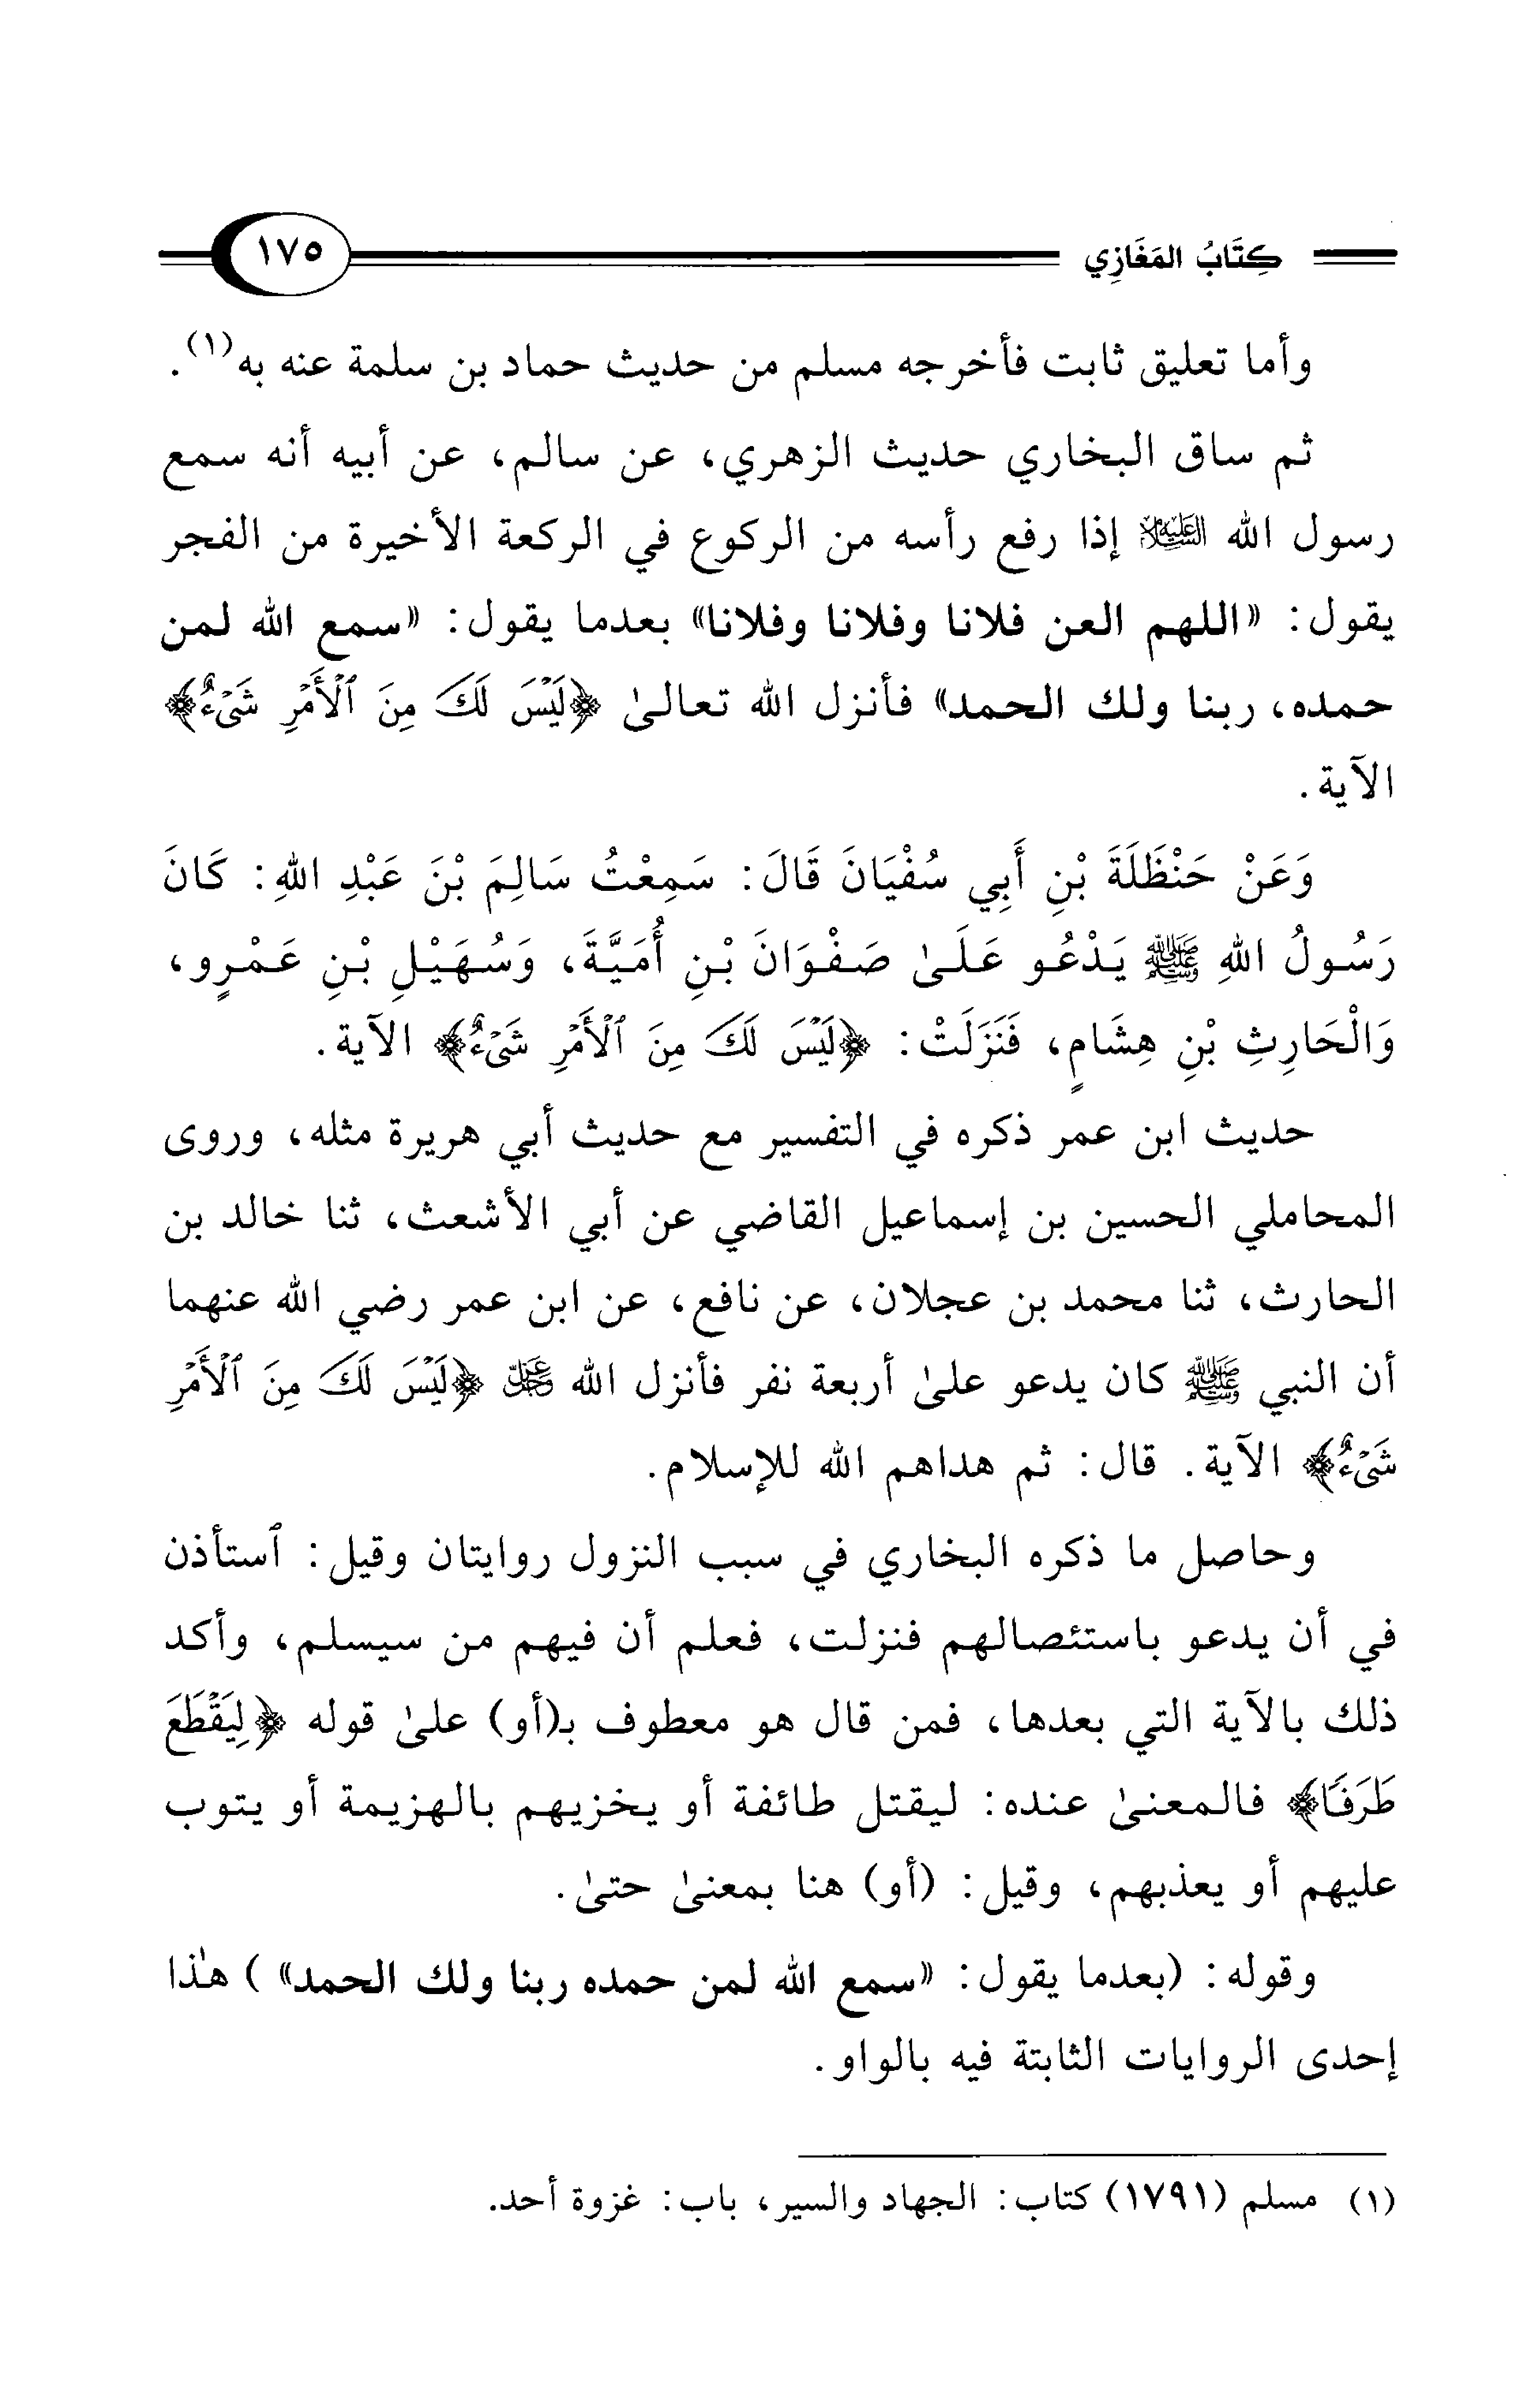 كِتَابُ المَغَازِي ١٧٥
وأما تعليق ثابت فأخرجه مسلم من حديث حماد بن سلمة عنه به(١).
ثم ساق البخاري حديث الزهري، عن سالم، عن أبيه أنه سمع
رسول الله عليه السلام إذا رفع رأسه من الركوع في الركعة الأخيرة من الفجر
يقول: «اللهم العن فلانا وفلانا وفلانا» بعدما يقول: «سمع الله لمن
حمده، ربنا ولك الحمد» فأنزل الله تعالىٰ ﴿لَيْسَ لَكَ مِنَ ٱلْأَمْرِ شَىْءٌ﴾
الآية.
وَعَنْ حَنْظَلَةَ بْنِ أَبِي سُفْيَانَ قَالَ: سَمِعْتُ سَالِمَ بْنَ عَبْدِ اللهِ: كَانَ
رَسُولُ اللهِ ﷺ يَدْعُو عَلَىٰ صَفْوَانَ بْنِ أُمَيَّةَ، وَسُهَيْلِ بْنِ عَمْرٍو،
وَالْحَارِثِ بْنِ هِشَامٍ، فَنَزَلَتْ: ﴿لَيْسَ لَكَ مِنَ ٱلْأَمْرِ شَىْءٌ﴾ الآية.
حديث ابن عمر ذكره في التفسير مع حديث أبي هريرة مثله، وروى
المحاملي الحسين بن إسماعيل القاضي عن أبي الأشعث، ثنا خالد بن
الحارث، ثنا محمد بن عجلان، عن نافع، عن ابن عمر رضي الله عنهما
أن النبي ﷺ كان يدعو علىٰ أربعة نفر فأنزل الله عز وجل ﴿لَيْسَ لَكَ مِنَ ٱلْأَمْرِ
شَىْءٌ﴾ الآية. قال: ثم هداهم الله للإسلام.
وحاصل ما ذكره البخاري في سبب النزول روايتان وقيل: ٱستأذن
في أن يدعو باستئصالهم فنزلت، فعلم أن فيهم من سيسلم، وأكد
ذلك بالآية التي بعدها، فمن قال هو معطوف بـ(أو) علىٰ قوله ﴿لِيَقْطَعَ
طَرَفًا﴾ فالمعنىٰ عنده: ليقتل طائفة أو يخزيهم بالهزيمة أو يتوب
عليهم أو يعذبهم، وقيل: (أو) هنا بمعنىٰ حتىٰ.
وقوله: (بعدما يقول: «سمع الله لمن حمده ربنا ولك الحمد» ) هٰذا
إحدى الروايات الثابتة فيه بالواو.
(١) مسلم (١٧٩١) كتاب: الجهاد والسير، باب: غزوة أحد.